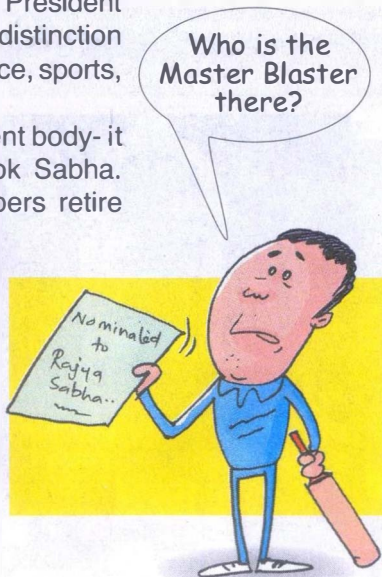 President
distinction
ce, sports,
ent body- it
ok Sabha.
bers retire
Who is the
Master Blaster
there?
Nominated
to
Rajya
Sabha..